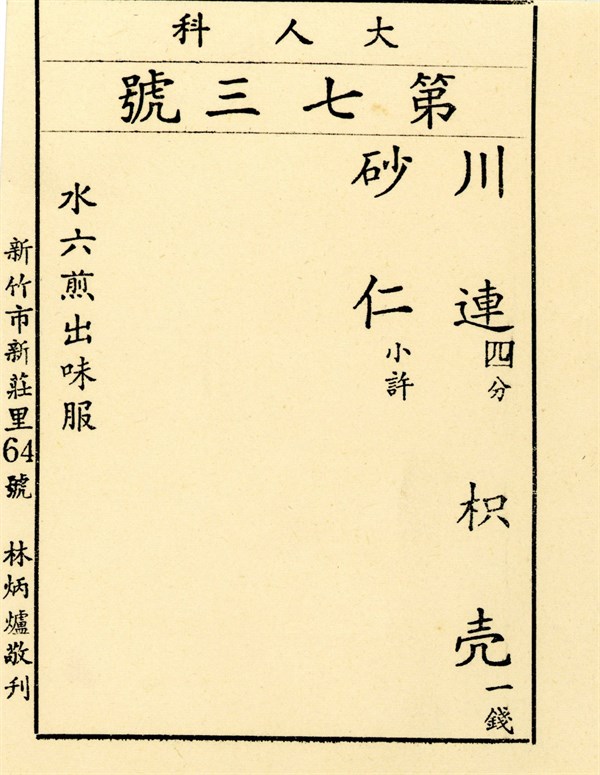 大人科
第七三號
川連四分 枳壳一錢
砂仁小許
水六煎出味服
新竹市新莊里64號 林炳爐敬刊